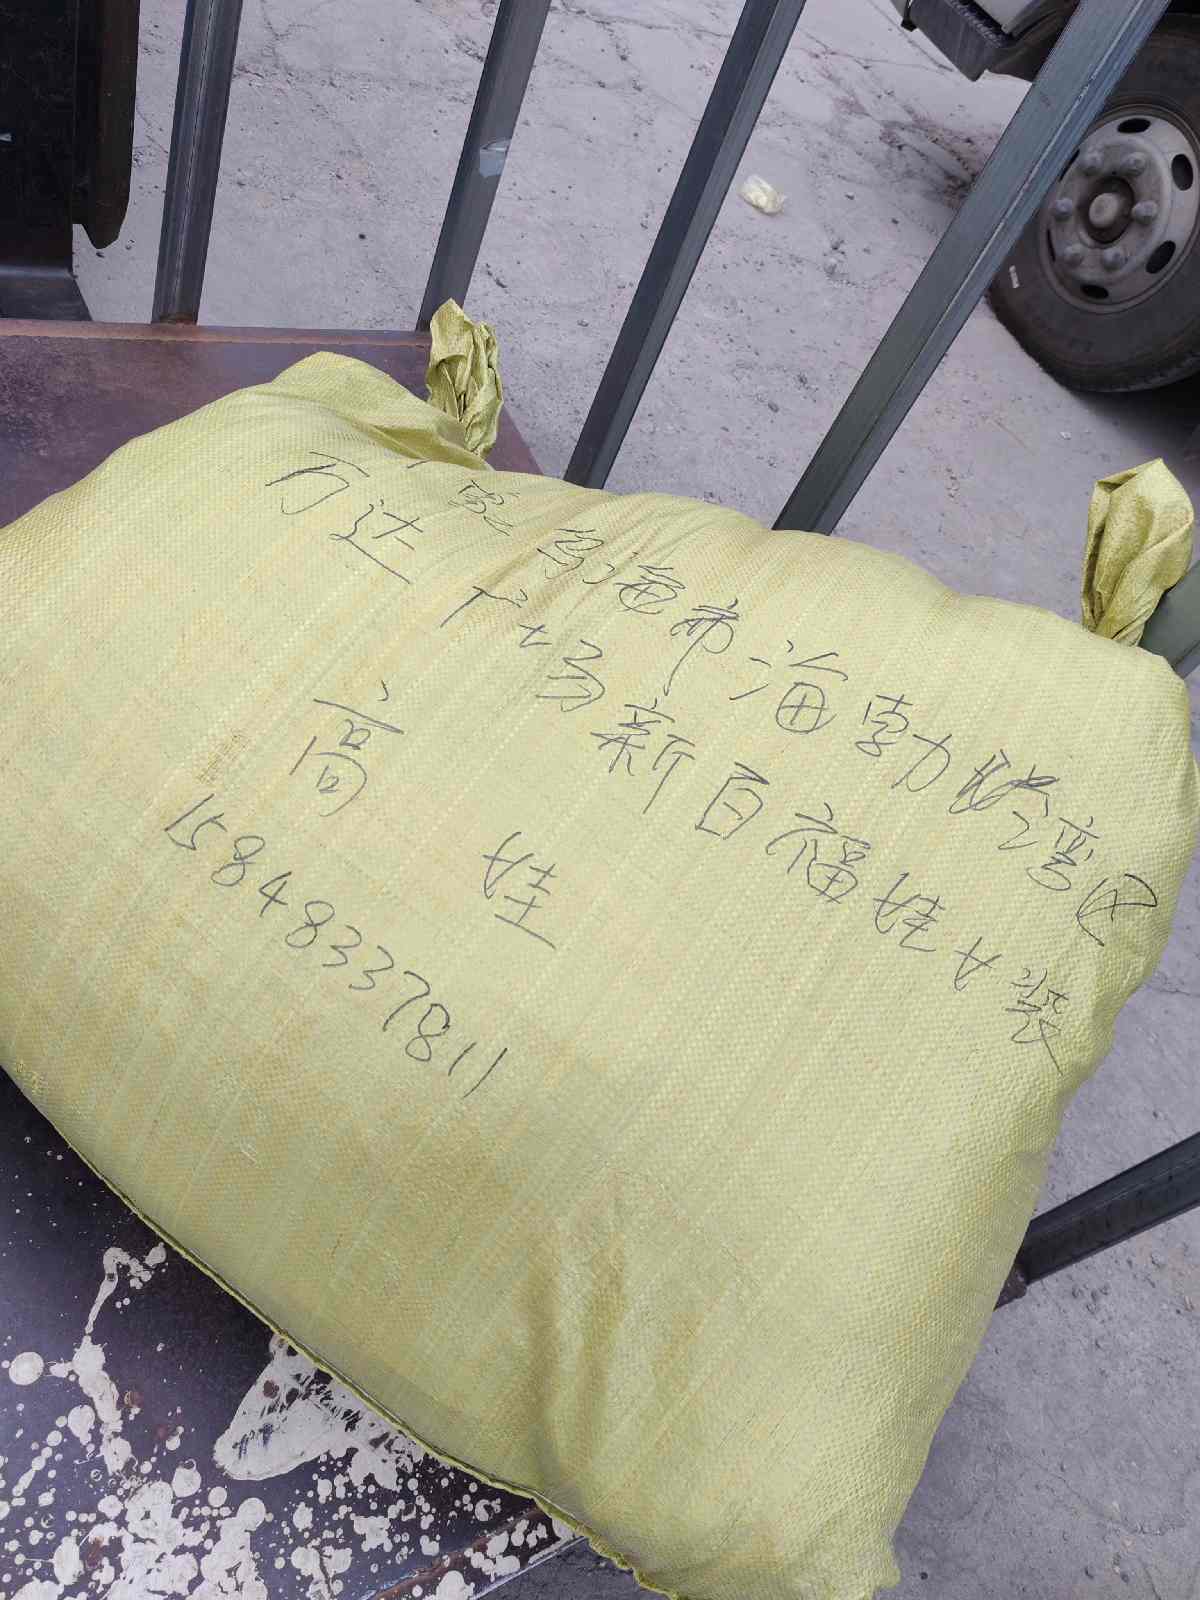 蒙乌海市海勃湾区
万达广场新百福娃女装
高 娃
15848337811